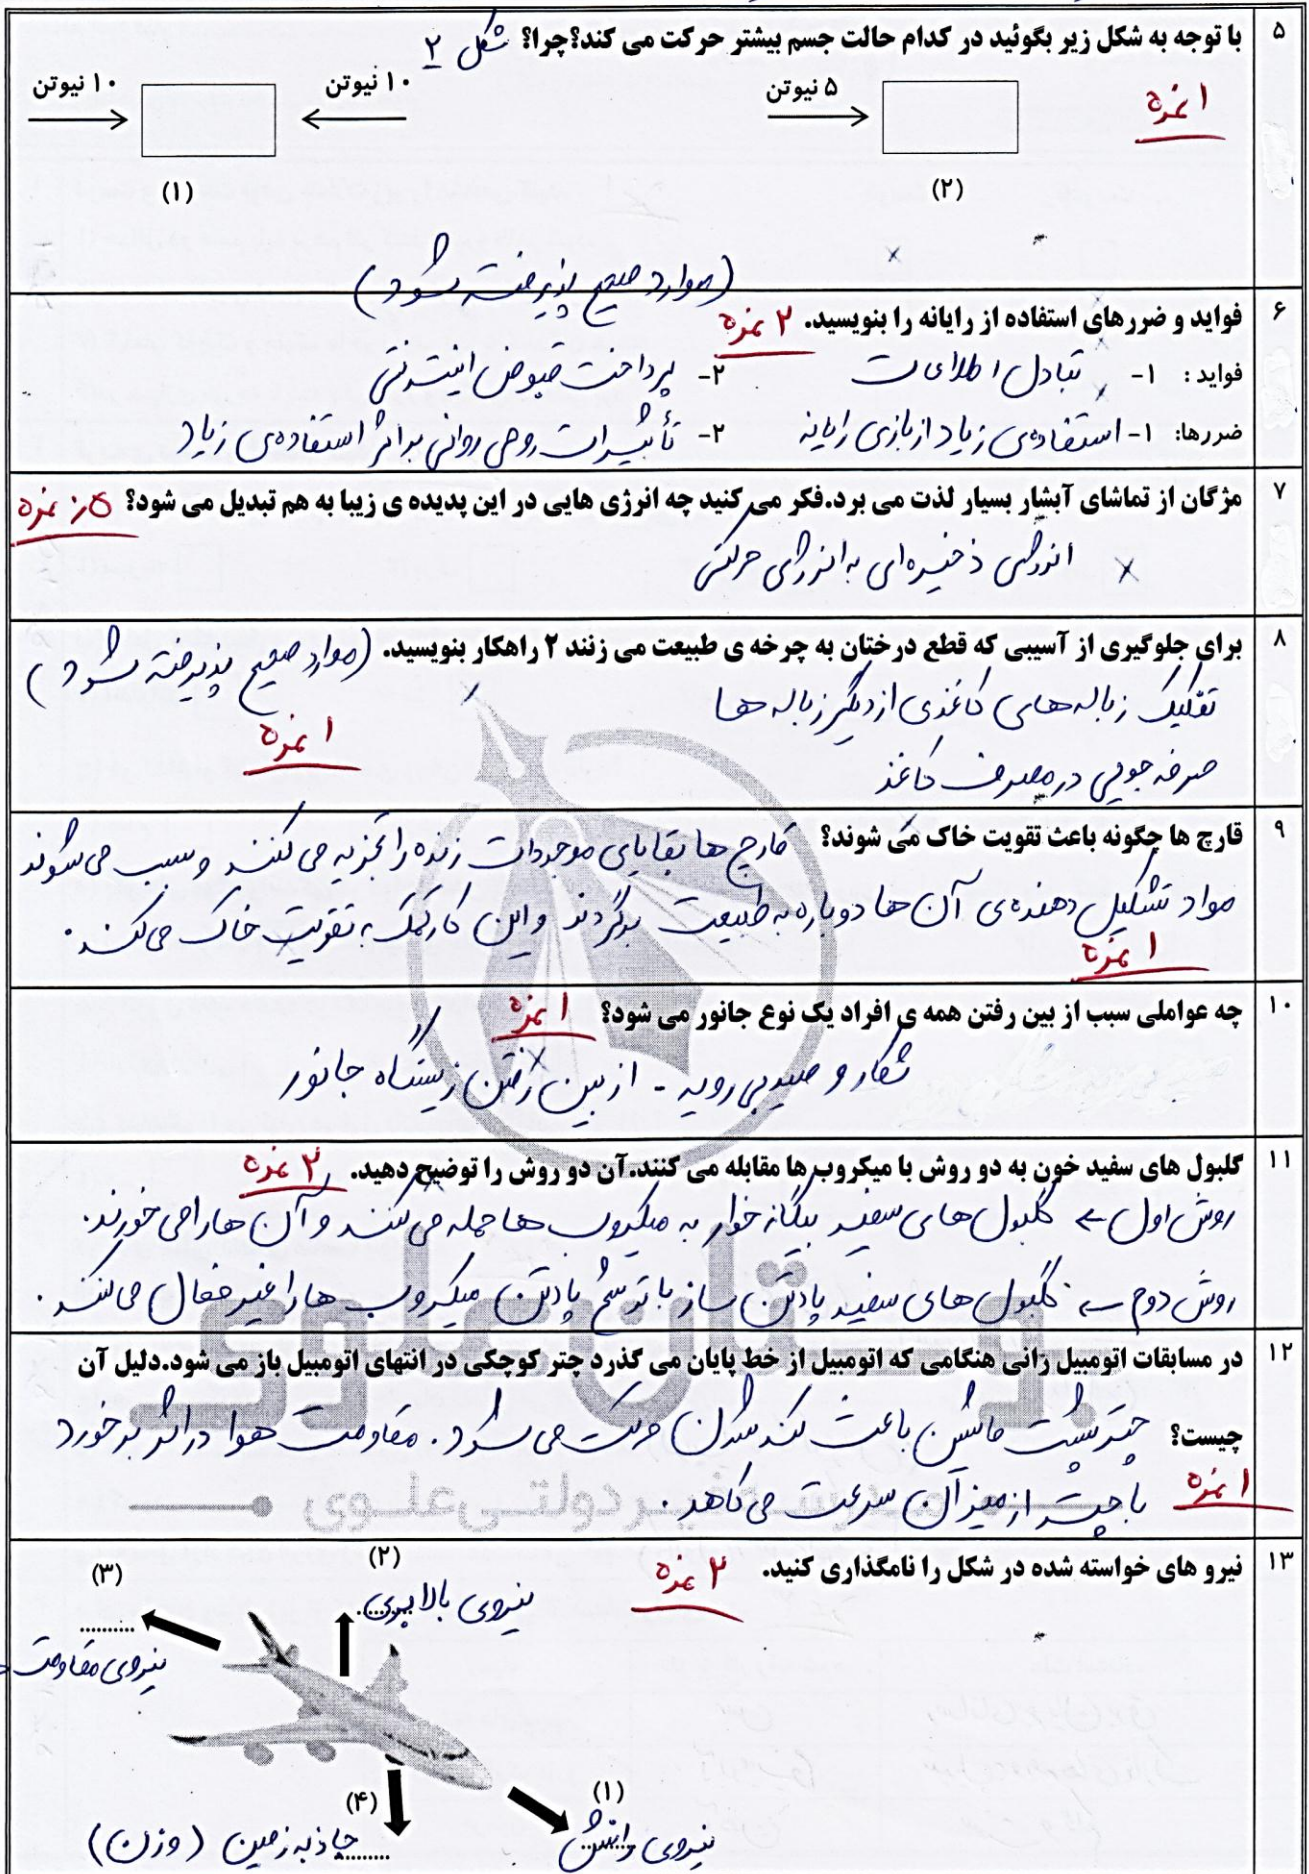 ۵ با توجه به شکل زیر بگوئید در کدام حالت جسم بیشتر حرکت می کند؟چرا؟ شکل ۲
۱ نمره
۵ نیوتن
۱۰ نیوتن ۱۰ نیوتن
(۲) (۱)
(موارد صحیح پذیرفته شود)
۶ فواید و ضررهای استفاده از رایانه را بنویسید. ۲ نمره
فواید : ۱- تبادل اطلاعات ۲- پرداخت قبوض اینترنتی
ضررها: ۱- استفاده‌ی زیاد از بازی رایانه ۲- تأثیرات روحی روانی بر اثر استفاده‌ی زیاد
۷ مژگان از تماشای آبشار بسیار لذت می برد.فکر می کنید چه انرژی هایی در این پدیده ی زیبا به هم تبدیل می شود؟ ۰/۵ نمره
انرژی ذخیره‌ای به انرژی حرکتی
۸ برای جلوگیری از آسیبی که قطع درختان به چرخه ی طبیعت می زنند ۲ راهکار بنویسید. (موارد صحیح پذیرفته شود)
تفکیک زباله‌های کاغذی از دیگر زباله ها
۱ نمره
صرفه جویی در مصرف کاغذ
۹ قارچ ها چگونه باعث تقویت خاک می شوند؟ قارچ ها بقایای موجودات زنده را تجزیه می کنند و سبب می شوند
مواد تشکیل دهنده‌ی آن ها دوباره به طبیعت برگردند و این کار کمک به تقویت خاک می کند.
۱ نمره
۱۰ چه عواملی سبب از بین رفتن همه ی افراد یک نوع جانور می شود؟ ۱ نمره
شکار و صید بی رویه - از بین رفتن زیستگاه جانور
۱۱ گلبول های سفید خون به دو روش با میکروب ها مقابله می کنند.آن دو روش را توضیح دهید. ۲ نمره
روش اول ← گلبول های سفید بیگانه خوار به میکروب ها حمله می کنند و آن ها را می خورند.
روش دوم ← گلبول های سفید پادتن ساز با ترشح پادتن میکروب ها را غیر فعال می کنند.
دبستان علوی
۱۲ در مسابقات اتومبیل رانی هنگامی که اتومبیل از خط پایان می گذرد چتر کوچکی در انتهای اتومبیل باز می شود.دلیل آن
چیست؟ چتر پشت ماشین باعث کند شدن حرکت می شود. مقاومت هوا در اثر برخورد
با چتر از میزان سرعت می کاهد.
۱ نمره
مدرسه غیردولتی علوی
۱۳ نیرو های خواسته شده در شکل را نامگذاری کنید. ۲ نمره
(۲) (۳)
نیروی بالابری
نیروی مقاومت
(۱) (۴)
نیروی رانش
جاذبه زمین (وزن)